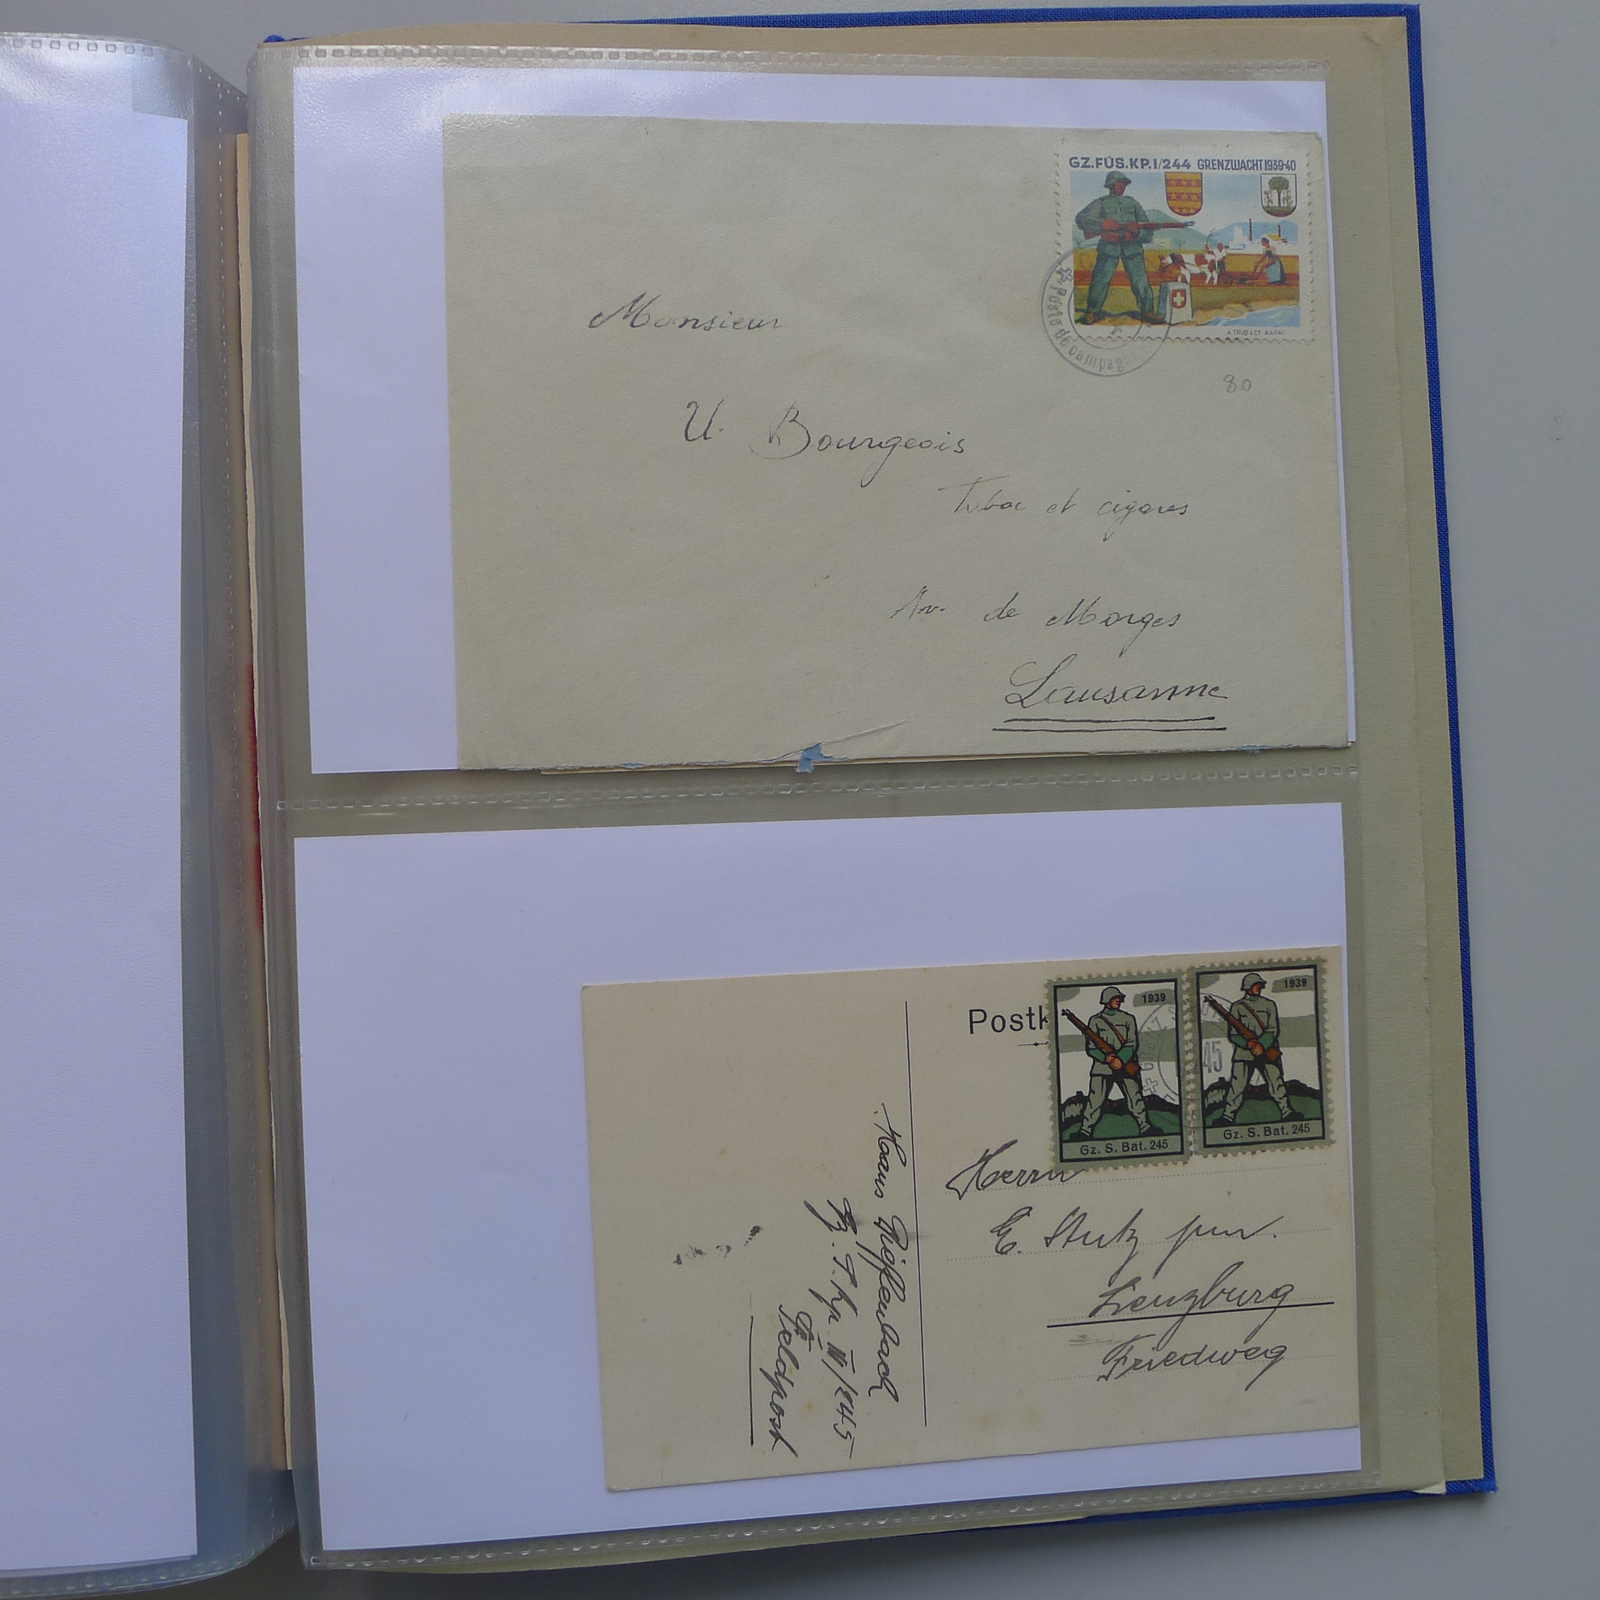 GZ.FÜS.KP.I/244 GRENZWACHT 1939-40
Poste de campag
80
Monsieur
U. Bourgeois
Tabac et cigares
Av. de Morges
Lausanne
Postk
1939
1939
45
Gz. S. Bat. 245
Gz. S. Bat. 245
Herrn
E. Stutz jun.
Lenzburg
Friedweg
Hans
IV/245
Feldpost